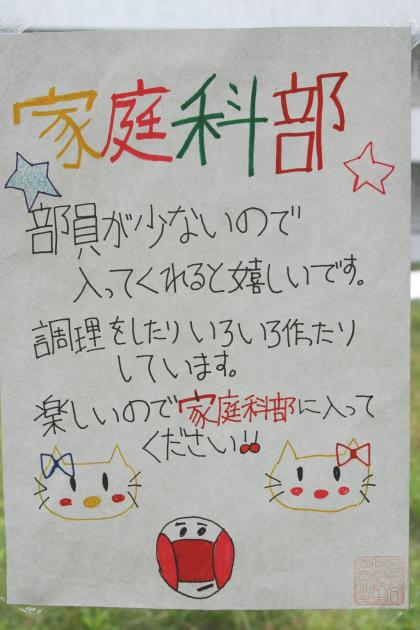 家庭科部
部員が少ないので
入ってくれると嬉しいです。
調理をしたりいろいろ作ったり
しています。
楽しいので家庭科部に入って
ください!!